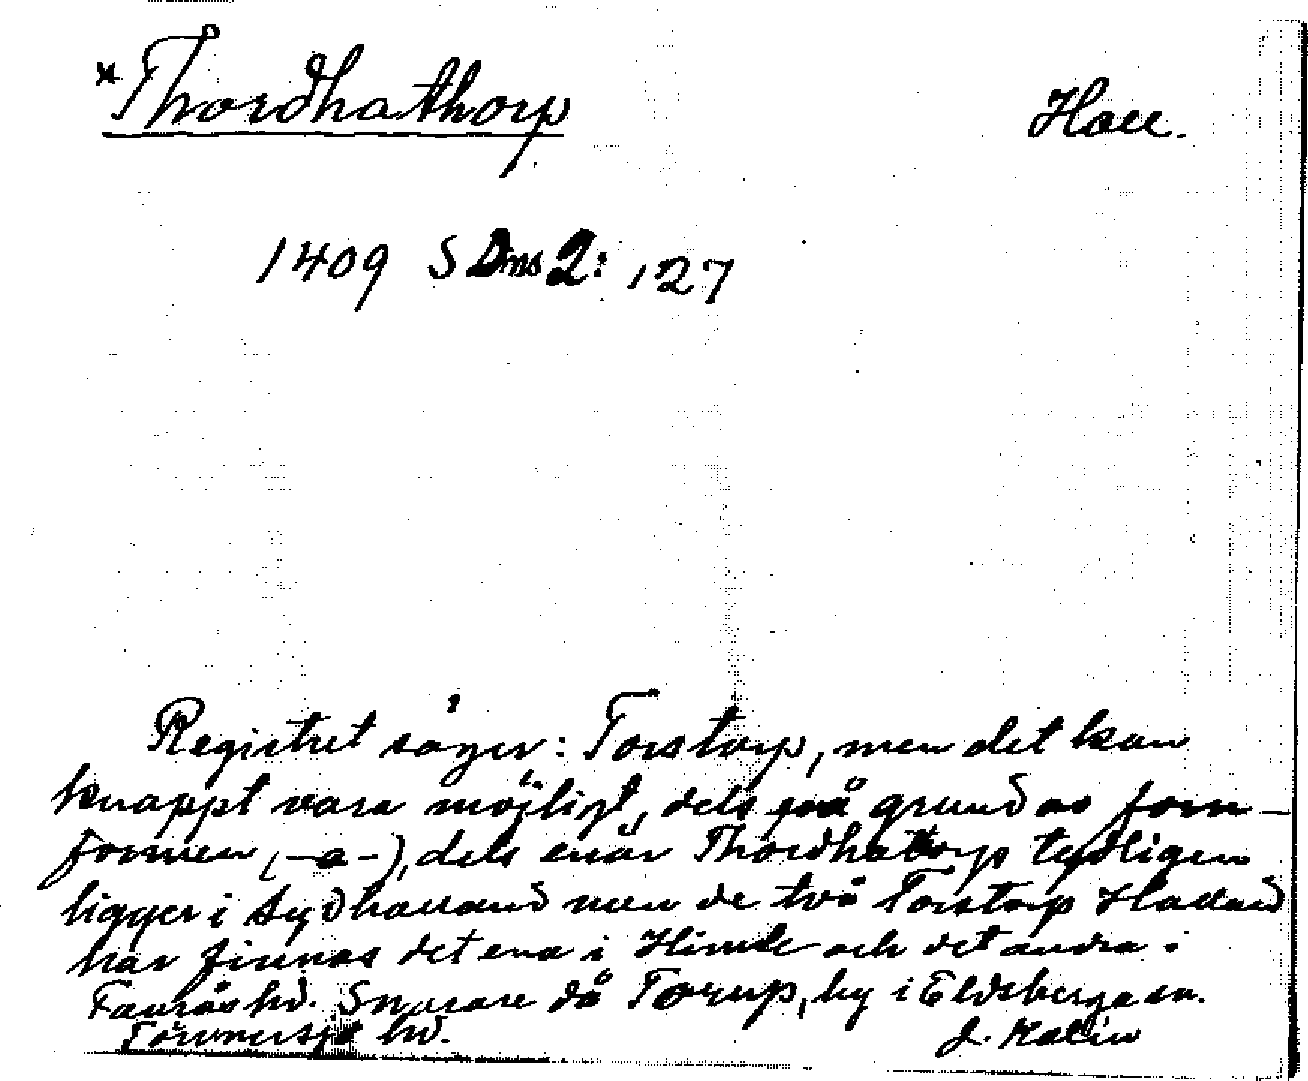 *Thordhathorp
Hall.
1409 SDns 2: 127
Registret säger: Torstorp, men det kan
knappt vara möjligt, dels på grund av forn-
formen (-a-), dels enär Thordhathorp tydligen
ligger i Sydhalland men de två Torstorp Halland
har finnas det ena i Himle och det andra i
Faurås hd. Snarare då Torup, by i Eldsberga sn.
Tönnersjö hd.
J. Kalén